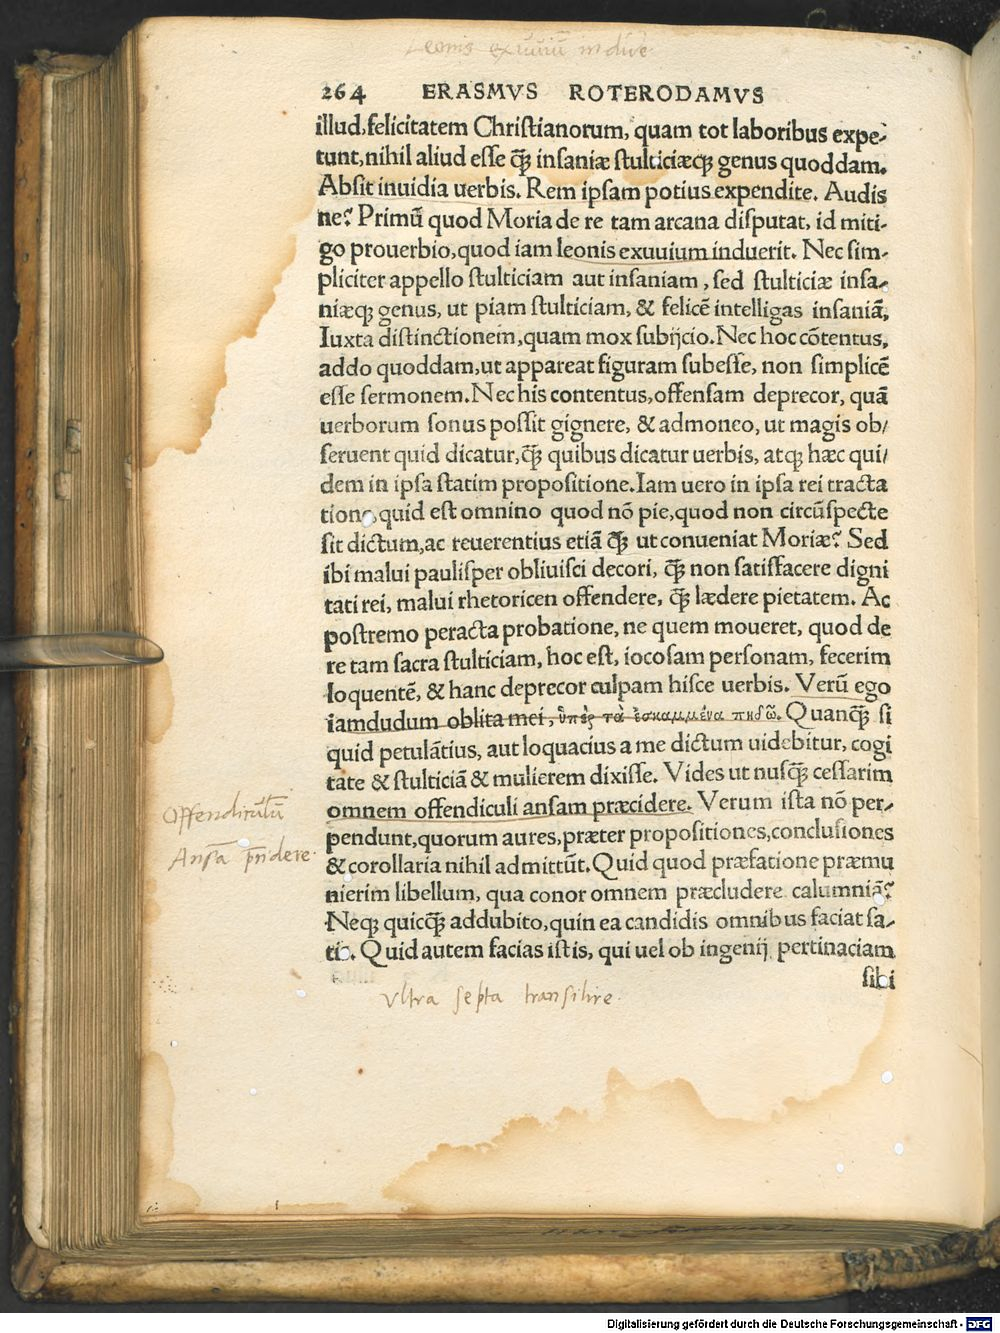 Leonis exuuiū indue
264 ERASMVS ROTERODAMVS
illud,felicitatem Christianorum, quam tot laboribus expe-
tunt,nihil aliud esse q̃ꝫ insaniæ stulticiæqꝫ genus quoddam.
Absit inuidia uerbis. Rem ipsam potius expendite. Audis
ne? Primū quod Moria de re tam arcana disputat, id miti-
go prouerbio,quod iam leonis exuuium induerit. Nec sim-
pliciter appello stulticiam aut insaniam, sed stulticiæ insa-
niæqꝫ genus, ut piam stulticiam, & felicē intelligas insaniā,
Iuxta distinctionem,quam mox subijcio.Nec hoc cōtentus,
addo quoddam,ut appareat figuram subesse, non simplicē
esse sermonem.Nec his contentus,offensam deprecor, quā
uerborum sonus possit gignere, & admoneo, ut magis ob/
seruent quid dicatur,q̃ꝫ quibus dicatur uerbis, atqꝫ hæc qui/
dem in ipsa statim propositione.Iam uero in ipsa rei tracta
tione,quid est omnino quod nō pie,quod non circūspecte
sit dictum,ac reuerentius etiā q̃ꝫ ut conueniat Moriæ? Sed
ibi malui paulisper obliuisci decori, q̃ꝫ non satisfacere digni
tati rei, malui rhetoricen offendere, q̃ꝫ lædere pietatem. Ac
postremo peracta probatione, ne quem moueret, quod de
re tam sacra stulticiam, hoc est, iocosam personam, fecerim
loquentē, & hanc deprecor culpam hisce uerbis. Verū ego
iamdudum oblita mei, ὑπὲρ τὰ ἐσκαμμένα πηδῶ. Quanq̃ꝫ si
quid petulātius, aut loquacius a me dictum uidebitur, cogi
tate & stulticiā & mulierem dixisse. Vides ut nusq̃ꝫ cessarim
omnem offendiculi ansam præcidere. Verum ista nō per-
pendunt,quorum aures,præter propositiones,conclusiones
& corollaria nihil admittūt.Quid quod præfatione præmu
nierim libellum, qua conor omnem præcludere calumniā?
Neqꝫ quicq̃ꝫ addubito,quin ea candidis omnibus faciat sa-
tis. Quid autem facias istis, qui uel ob ingenij pertinaciam
sibi
Offendiculū
Ansā p̄cidere.
Vltra septa transilire.
Digitalisierung gefördert durch die Deutsche Forschungsgemeinschaft - DFG